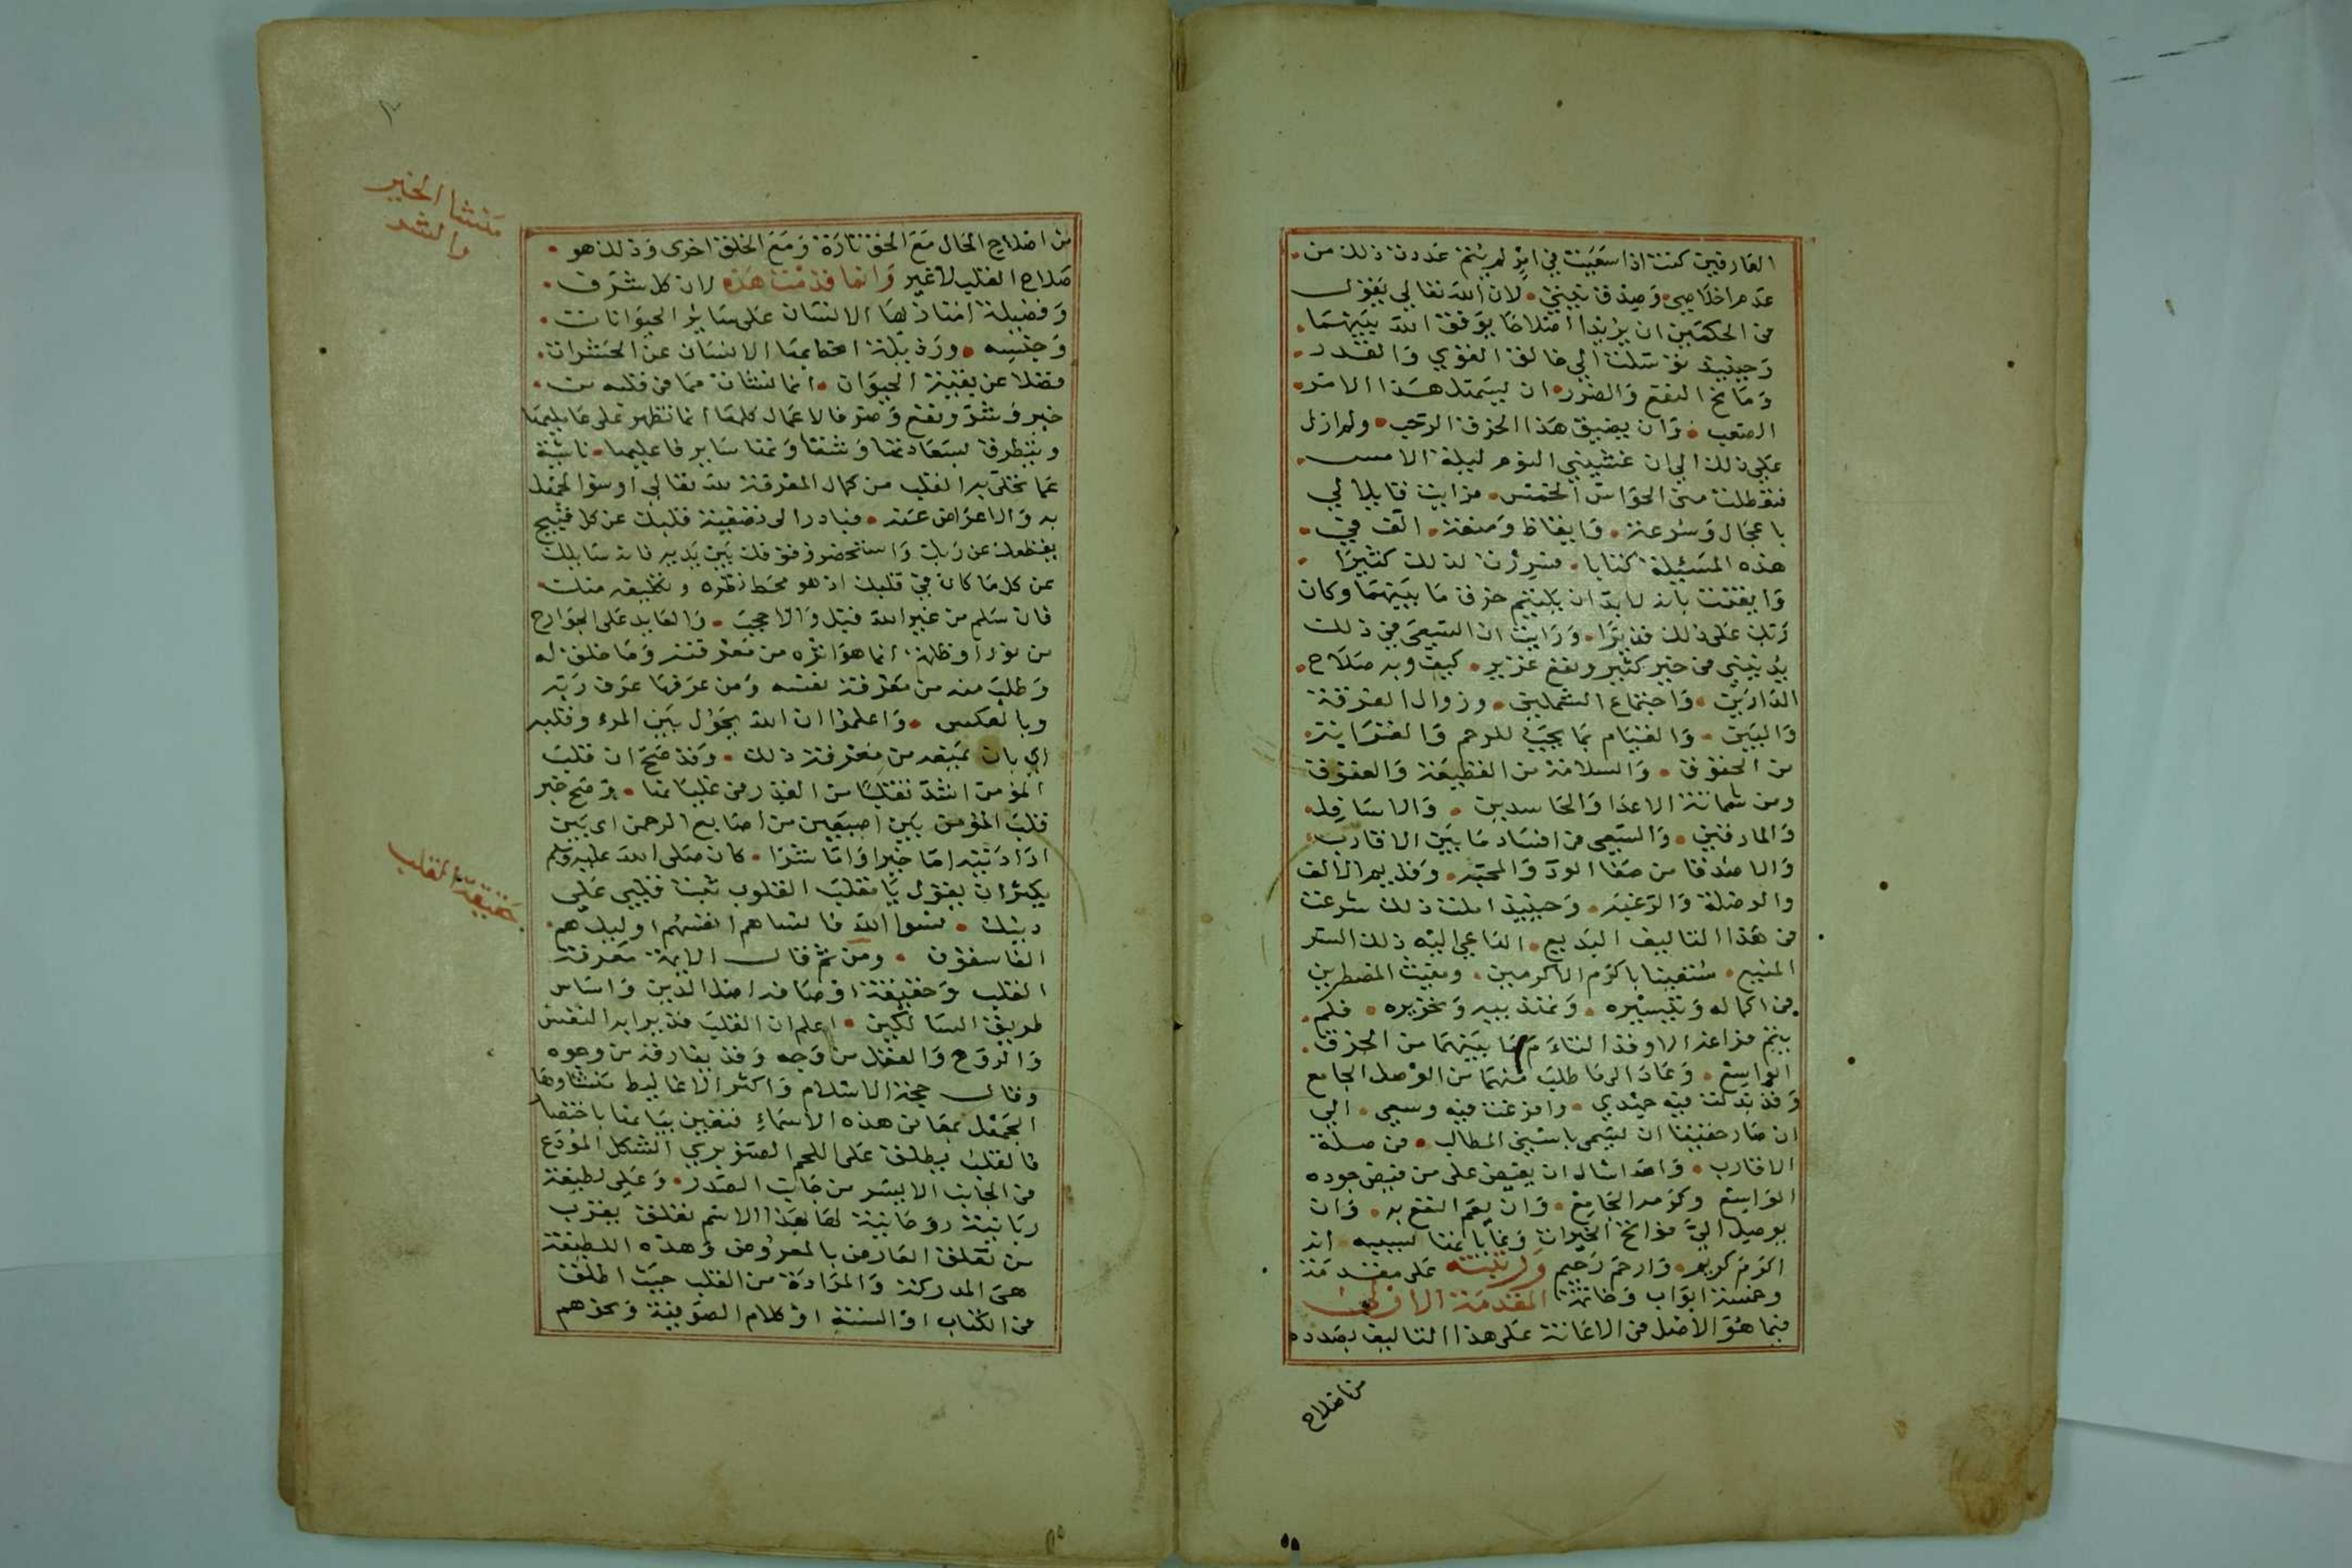 العارفين كنت اذا سعيت في امر لم يتم عددت ذلك من
عدم اخلاصي وصدق نيتي لان الله تعالى يقول
في الحكمين ان يريدا اصلاحا يوفق الله بينهما
وحينئذ توسلت الى خالق القوي والقدر
ومانح النفع والضرر ان يسهل هذا الامر
الصعب وان يضيق هذا الخرق الرحب ولم ازل
على ذلك الى ان غشيني النوم ليلة الامس
فتعطلت مني الحواس الخمس فرايت قايلا لي
باعجال وسرعة وايقاظ ومنعة الف في
هذه المسئلة كتابا فسررت لذلك كثيرا
وايقنت بانه لا بد ان يلتئم خرق ما بينهما وكان
ربك على ذلك قديرا ورايت ان السعي في ذلك
يدنيني من خير كثير ونفع غزير كيف وبه صلاح
الدارين واجتماع الشملين وزوال الفرقة
والبين والقيام بما يجب للرحم والقرابة
من الحقوق والسلامة من القطيعة والعقوق
ومن شماتة الاعدا والحاسدين والاسافل
والمارقين والسعي في افساد ما بين الاقارب
والاصدقا من صفا الود والمحبة وقديم الالف
والوصلة والرغبة وحينئذ املت ذلك شرعت
في هذا التاليف البديع الداعي اليه ذلك السر
المنيع مستعينا باكرم الاكرمين ومغيث المضطرين
في اكماله وتيسيره وتهذيبه وتحريره فلم
يتم فراغه الا وقد التام ما بينهما من الخرق
الواسع وعاد الى ما طلب منهما من الوصل الجامع
وقد بذلت فيه جهدي وافرغت فيه وسعي الى
ان صار حقيقا ان يسمى باسنى المطالب في صلة
الاقارب والله اسال ان يفيض علي من فيض جوده
الواسع وكرمه الجامع وان يعم النفع به وان
يوصل الي فواتح الخيرات وغاياتها بسببه انه
اكرم كريم وارحم رحيم ورتبته على مقدمة
وخمسة ابواب وخاتمة المقدمة الاولى
فيما هو الاصل في الاعانة على هذا التاليف بصدده
من اصلاح
من اصلاح الحال مع الحق تارة ومع الخلق اخرى وذلك هو
صلاح القلب لا غير وانما قدمت هذه لان كل شرف
وفضيلة امتاز بها الانسان على ساير الحيوانات
وجنسه ورذيلة انحط بها الانسان عن الحشرات
فضلا عن بقية الحيوان انما نشات مما في قلبه من
خير وشر ونفع وضر فالاعمال كلها انما تظهر على ما يليها
وينظر في سعادتها وشقاوتها ساير فاعليها ناشئة
عما تحلى به القلب من كمال المعرفة لله تعالى او سوا الجهل
به والاعراض عنه فبادر الى تصفية قلبك عن كل قبيح
يقطعك عن ربك واستحضر وقوفك بين يديه فانه سايلك
عن كل ما كان في قلبك اذ هو محط نظره وتكليفه منك
فان سلم من غير الله قبل والا حجب والعايد على الجوارح
من نور او ظلمة انما هو اثره من معرفته وما خلق له
وطلب منه من معرفة نفسه ومن عرفها عرف ربه
وبالعكس واعلموا ان الله يحول بين المرء وقلبه
اي بان يمنعه من معرفة ذلك وقد صح ان قلب
المؤمن اشد تقلبا من القدر في غليانها وصح خبر
قلب المؤمن بين اصبعين من اصابع الرحمن اي بين
ارادتيه اما خيرا واما شرا كان صلى الله عليه وسلم
يكثر ان يقول يا مقلب القلوب ثبت قلبي على
دينك نسوا الله فانساهم انفسهم اوليك هم
الفاسقون ومن ثم قال الايمة معرفة
القلب وحقيقة اوصافه اصل الدين واساس
طريق السالكين اعلم ان القلب قد يراد به النفس
والروح والعقل من وجه وقد يفارقه من وجوه
وقال حجة الاسلام واكثر الاغاليط منشاوها
الجهل بمعاني هذه الاسماء فتعين بيانها باختصار
فالقلب يطلق على اللحم الصنوبري الشكل المودع
في الجانب الايسر من جانب الصدر وعلى لطيفة
ربانية روحانية لها بهذا الاسم تعلق يقرب
من تعلق العارض بالمعروض وهذه اللطيفة
هي المدركة والمرادة من القلب حيث اطلق
في الكتاب او السنة او كلام الصوفية ونحوهم
منشا الخير
والشر
حقيقة القلب